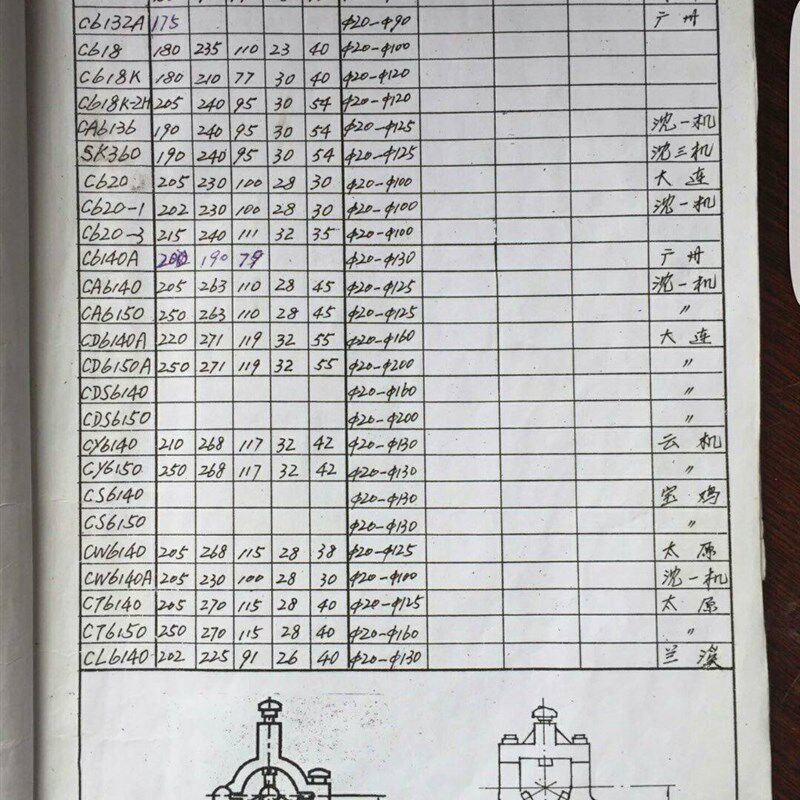 C6132A 175 Φ20-Φ90 广州
C618 180 235 110 23 40 Φ20-Φ100
C618K 180 210 77 30 40 Φ20-Φ120
C618K-2H 205 240 95 30 54 Φ20-Φ120
CA6136 190 240 95 30 54 Φ20-Φ125 沈一机
SK360 190 240 95 30 54 Φ20-Φ125 沈三机
C620 205 230 100 28 30 Φ20-Φ100 大连
C620-1 202 230 100 28 30 Φ20-Φ100 沈一机
C620-3 215 240 111 32 35 Φ20-Φ100
C6140A 200 190 79 Φ20-Φ130 广州
CA6140 205 263 110 28 45 Φ20-Φ125 沈一机
CA6150 250 263 110 28 45 Φ20-Φ125 〃
CD6140A 220 271 119 32 55 Φ20-Φ160 大连
CD6150A 250 271 119 32 55 Φ20-Φ200 〃
CDS6140 Φ20-Φ160 〃
CDS6150 Φ20-Φ200 〃
CY6140 210 268 117 32 42 Φ20-Φ130 云机
CY6150 250 268 117 32 42 Φ20-Φ130 〃
CS6140 Φ20-Φ130 宝鸡
CS6150 Φ20-Φ130 〃
CW6140 205 268 115 28 38 Φ20-Φ125 太原
CW6140A 205 230 100 28 30 Φ20-Φ100 沈一机
CT6140 205 270 115 28 40 Φ20-Φ125 太原
CT6150 250 270 115 28 40 Φ20-Φ160 〃
CL6140 202 225 91 26 40 Φ20-Φ130 兰溪